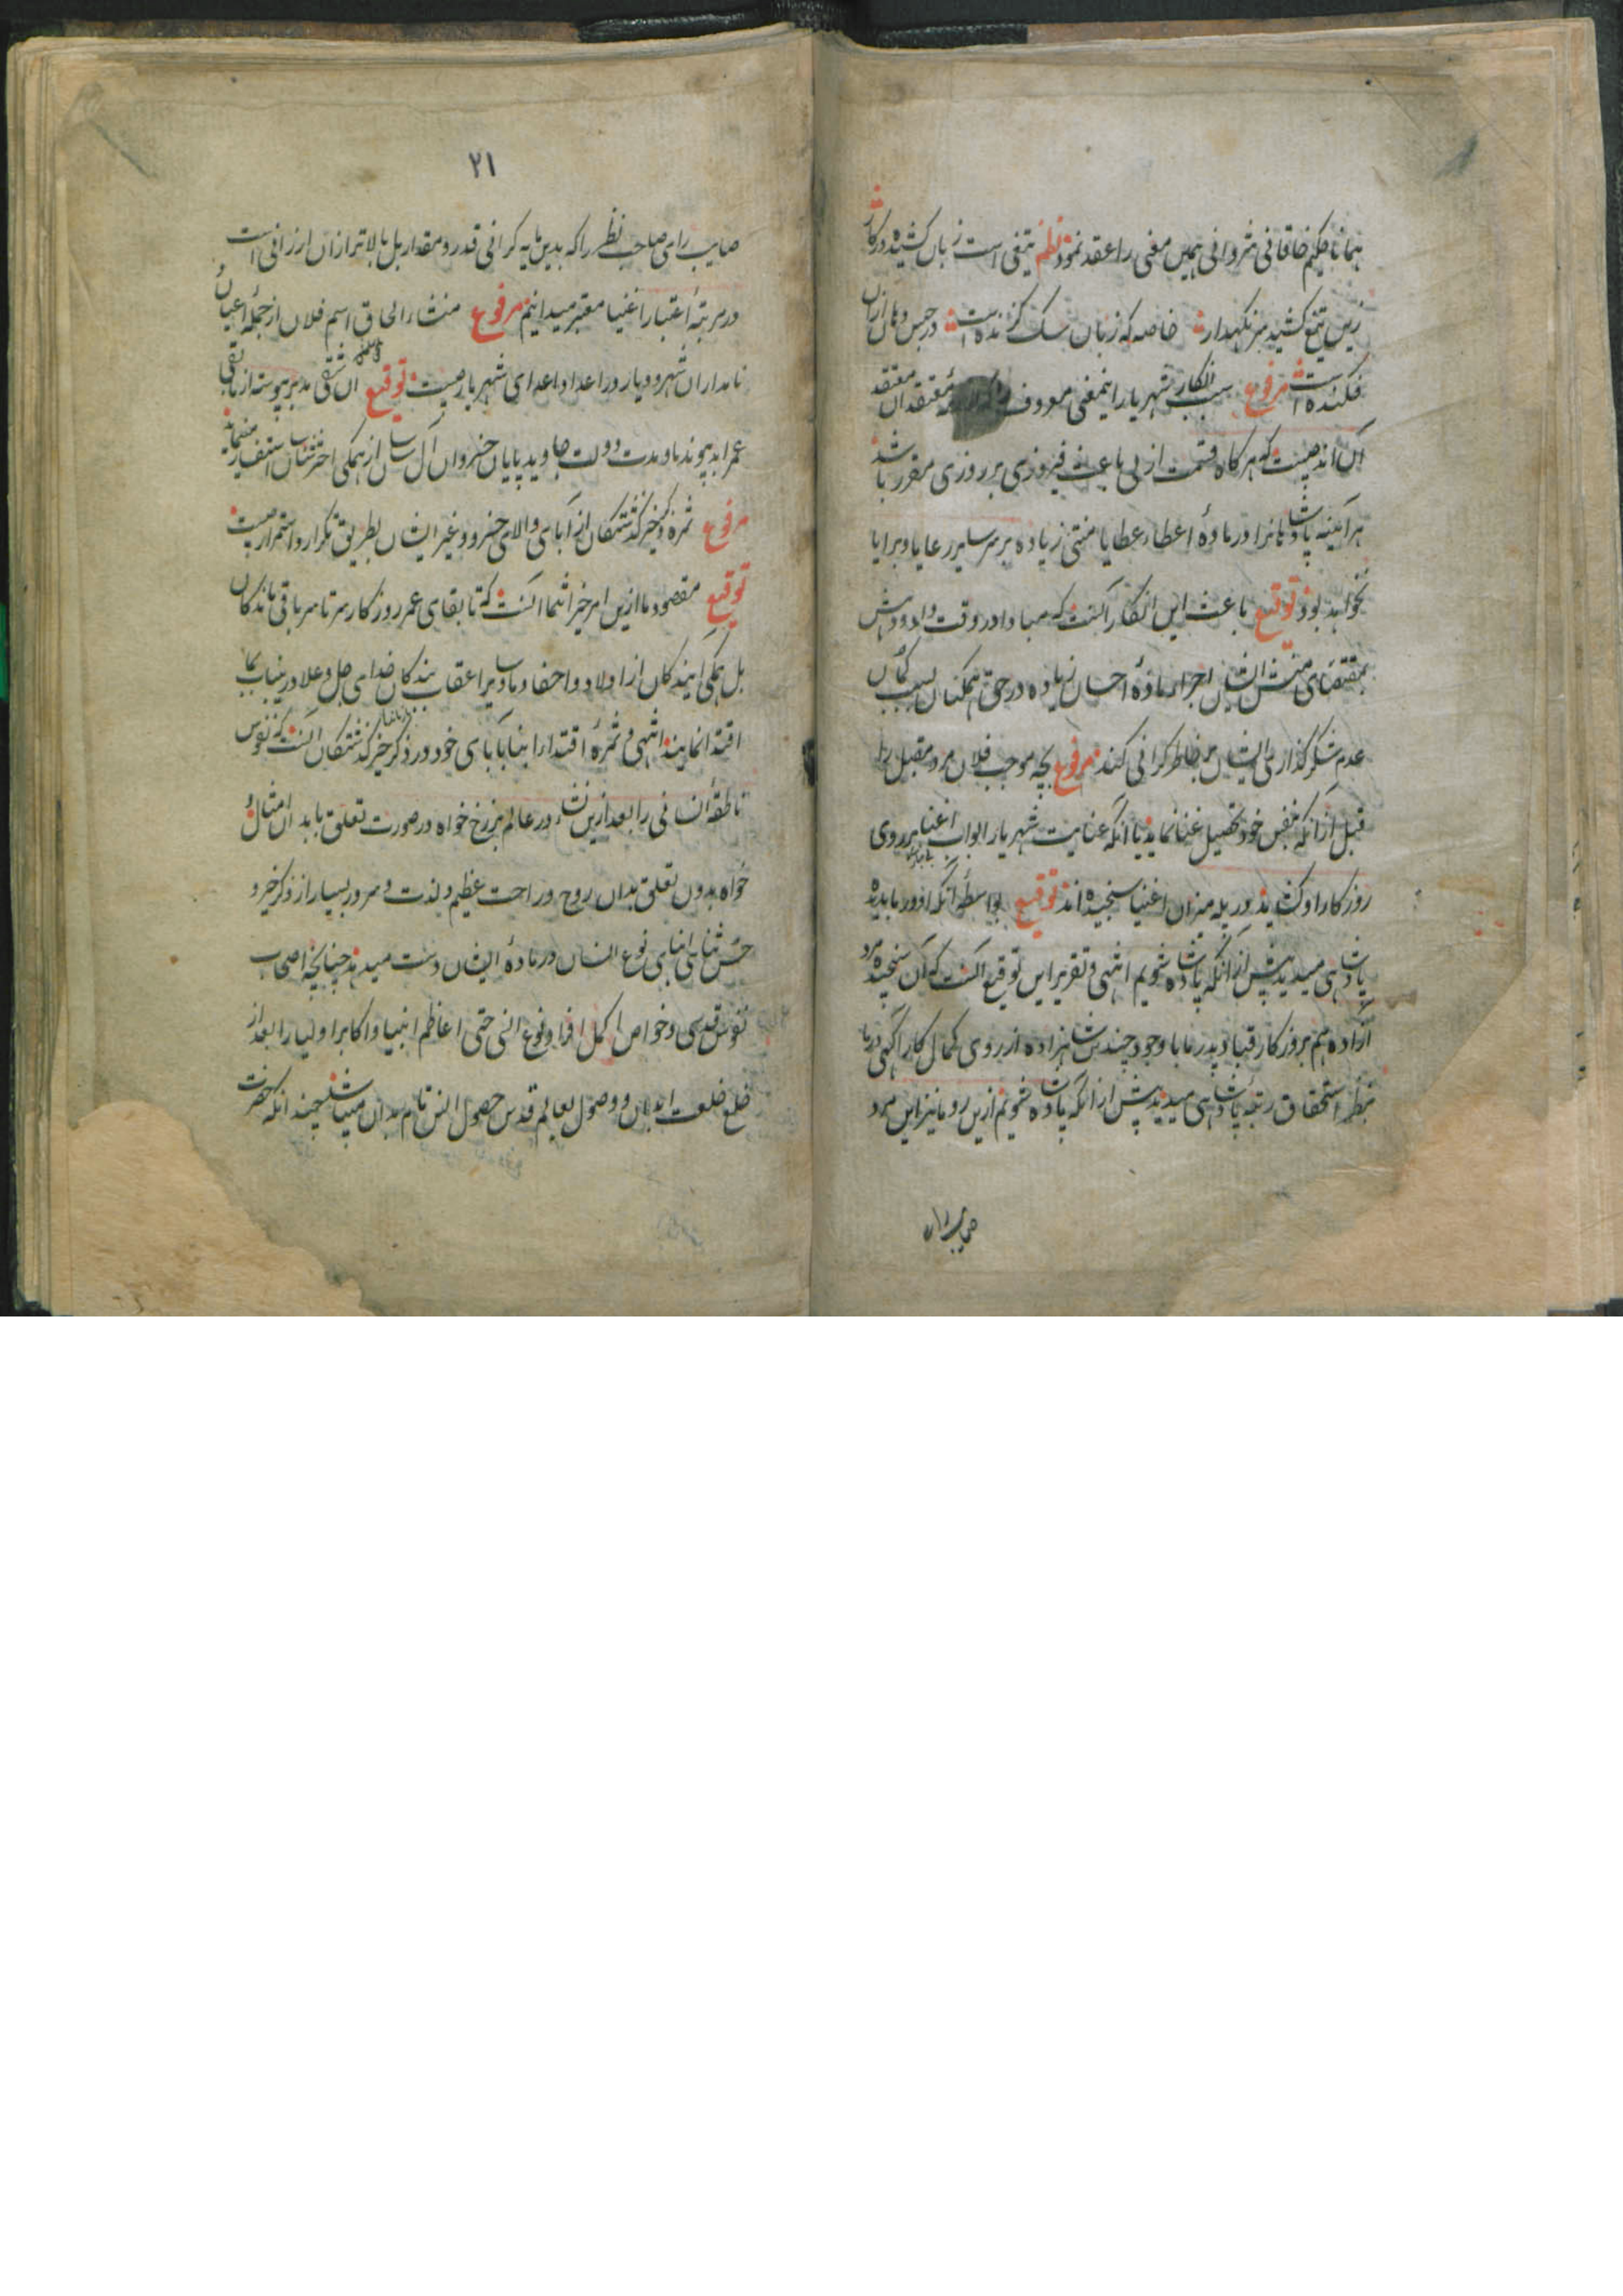 همانا حکیم خاقانی شروانی همین معنی را عقد نموده نظم تیغی است زبان کشیده در کار
زین تیغ کشیده سر نگهدار خاصه که زبان سگ گزنده است در حبس دهان ازان
فکنده است مرفوع سبب انکار شهریار اینمعنی معروف معتقدان معتقد
آن اند چیست که هر گاه قسمت از بی باعث فیروزی بر روزی مقرر باشد
هر آینه پادشاهانرا در ماده اعطاء عطایا منتی زیاده بر سر سایر رعایا و برایا
نخواهد بود توقیع باعث این انکار آنست که مبادا در وقت داد و دهش
بمقتضای منش ایشان اجراء ماده احسان زیاده در حق همکنان بسبب گمان
عدم شکرگذاری ایشان بر خاطر گرانی کند مرفوع بچه موجب فلان مرد مقبل را
قبل از آنکه بنفس خود تحصیل غنا نماید یا آنکه عنایت شهریار ابواب اغنا بر روی
روزگار او گشاید در پله میزان اغنیا سنجیده اند توقیع بواسطه آنکه او در ما بدیده
پادشاهی میدید پیش از آنکه پادشاه شویم انتهی و تقریر این توقیع آنست که آن سنجیده مرد
آزاده هم بروزگار قباد پدر ما با وجود چندین شاهزاده از روی کمال کار آگهی در ما
بنظر استحقاق رتبه پادشاهی میدید پیش از آنکه پادشاه شویم ازین رو ما نیز این مرد
صایب رای
۲۱
صایب رای صاحب نظر را که بدین پایه گرانی قدر و مقدار بل بالاتر ازان ارزانی است
در مرتبه اعتبار اغنیا معتبر میدانیم مرفوع منشاء الحاق اسم فلان از جمله اعیان
نامداران شهر و دیار در اعداد اعدای شهریار چیست توقیع آن شقی مدبر پیوسته از باقی
عمر ابد پیوند ما و مدت دولت جاوید پایان خسروان آل ساسان از همگی اخترشناسان استفسار مینماید
مرفوع ثمره ذکر خیر گذشتگان از آبای والای خسرو و غیر ایشان بطریق تکرار و استمرار چیست
توقیع مقصود ما ازین امر خیر انتما آنست که تا بقای عمر روزگار سرتاسر باقی ماندگان
بل همگی آیندگان از اولاد و احفاد ما و سایر اعقاب بندگان خدای جل و علا درینباب بما
اقتدا نمایند انتهی و ثمره اقتدار ابنا بآبای خود در ذکر خیر گذشتگان آنست که نفوس
ناطقه انسانی را بعد ازین نشاء در عالم برزخ خواه در صورت تعلق بابدان مثالی
خواه بدون تعلق بدان روح و راحت عظیم و لذت و سرور بسیار از ذکر خیر و
حسن ثنای ابنای نوع انسان در ماده ایشان دست میدهد چنانچه اصحاب
نفوس قدسی و خواص اکمل افراد نوع انسی حتی اعاظم انبیا و اکابر اولیا را بعد از
خلع خلعت ابدان و وصول بعالم قدس حصول انس تام بدان میباشد چنانکه حضرت